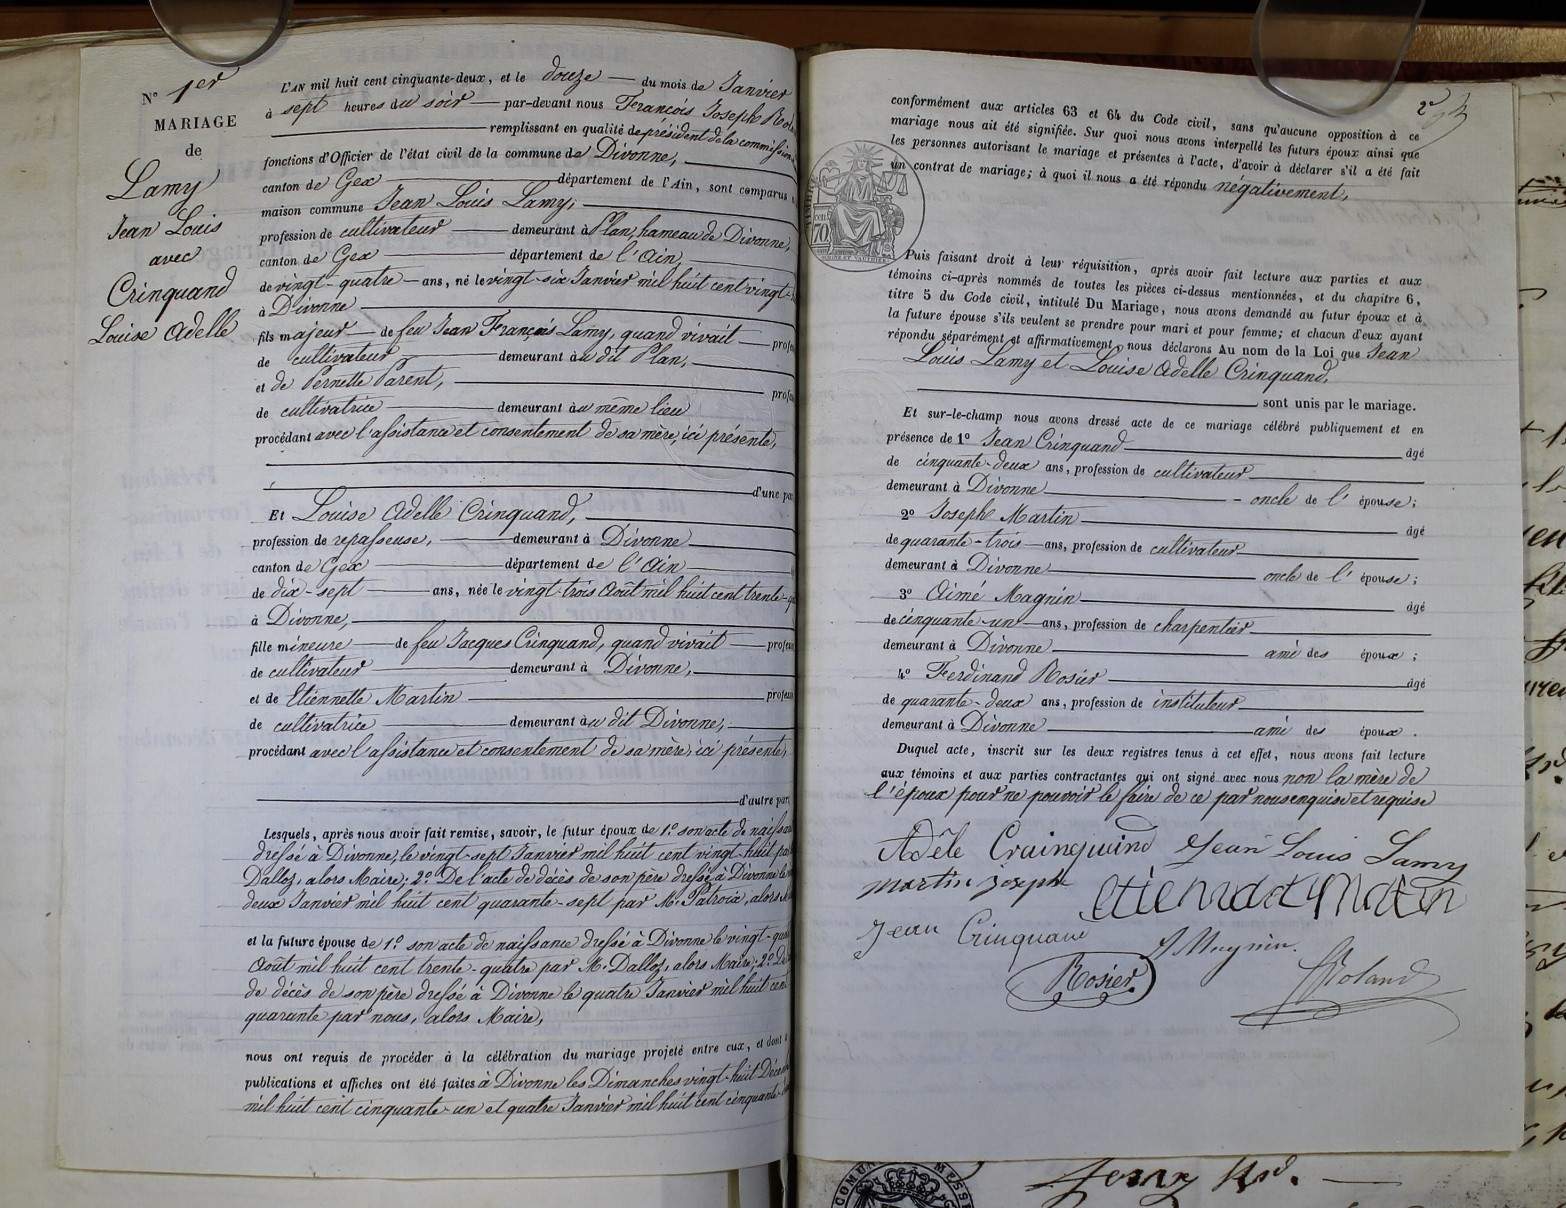 N° 1er
MARIAGE
de
Lamy
Jean Louis
avec
Crinquand
Louise Adelle
L'AN mil huit cent cinquante-deux, et le douze du mois de Janvier
à sept heures du soir par-devant nous François Joseph
remplissant en qualité de président de la commission
fonctions d'Officier de l'état civil de la commune de Divonne,
canton de Gex département de l'Ain, sont comparus
maison commune Jean Louis Lamy,
profession de cultivateur demeurant à Plan, hameau de Divonne,
canton de Gex département de l'Ain,
de vingt-quatre ans, né le vingt-six Janvier mil huit cent vingt-
à Divonne
fils majeur de feu Jean François Lamy, quand vivait
de cultivateur demeurant au dit Plan,
et de Pernette Parent,
de cultivatrice demeurant au même lieu
procédant avec l'assistance et consentement de sa mère, ici présente,
d'une
Et Louise Adelle Crinquand,
profession de repasseuse, demeurant à Divonne
canton de Gex département de l'Ain
de dix-sept ans, née le vingt-trois Août mil huit cent trente-
à Divonne,
fille mineure de feu Jacques Crinquand, quand vivait
de cultivateur demeurant à Divonne,
et de Etiennette Martin
de cultivatrice demeurant au dit Divonne,
procédant avec l'assistance et consentement de sa mère, ici présente,
d'autre
Lesquels, après nous avoir fait remise, savoir, le futur époux de 1.° son acte de
dressé à Divonne, le vingt-sept Janvier mil huit cent vingt-huit
Dalloz, alors Maire; 2.° De l'acte de décès de son père dressé à Divonne le
deux Janvier mil huit cent quarante-sept par M. Patroix, alors
et la future épouse de 1.° son acte de naissance dressé à Divonne le vingt-
Août mil huit cent trente-quatre par M. Dalloz, alors Maire; 2.°
de décès de son père dressé à Divonne le quatre Janvier mil huit cent
quarante par nous, alors Maire,
nous ont requis de procéder à la célébration du mariage projeté entre eux, et dont
publications et affiches ont été faites à Divonne les Dimanches vingt-huit
mil huit cent cinquante-un et quatre Janvier mil huit cent cinquante-
2e
conformément aux articles 63 et 64 du Code civil, sans qu'aucune opposition à ce
mariage nous ait été signifiée. Sur quoi nous avons interpellé les futurs époux ainsi que
les personnes autorisant le mariage et présentes à l'acte, d'avoir à déclarer s'il a été fait
un contrat de mariage; à quoi il nous a été répondu négativement,
Puis faisant droit à leur réquisition, après avoir fait lecture aux parties et aux
témoins ci-après nommés de toutes les pièces ci-dessus mentionnées, et du chapitre 6,
titre 5 du Code civil, intitulé Du Mariage, nous avons demandé au futur époux et à
la future épouse s'ils veulent se prendre pour mari et pour femme; et chacun d'eux ayant
répondu séparément et affirmativement, nous déclarons Au nom de la Loi que Jean
Louis Lamy et Louise Adelle Crinquand,
sont unis par le mariage.
Et sur-le-champ nous avons dressé acte de ce mariage célébré publiquement et en
présence de 1° Jean Crinquand âgé
de cinquante-deux ans, profession de cultivateur
demeurant à Divonne oncle de l'épouse;
2° Joseph Martin âgé
de quarante-trois ans, profession de cultivateur
demeurant à Divonne oncle de l'épouse;
3° Aimé Magnin âgé
de cinquante-un ans, profession de charpentier
demeurant à Divonne ami des époux;
4° Ferdinand Rosier âgé
de quarante-deux ans, profession de instituteur
demeurant à Divonne ami des époux.
Duquel acte, inscrit sur les deux registres tenus à cet effet, nous avons fait lecture
aux témoins et aux parties contractantes qui ont signé avec nous non la mère de
l'époux pour ne pouvoir le faire de ce par nous enquise et requise
Adèle Crainquand Jean Louis Lamy
martin joseph
Jean Crinquand
Rosier
Roland